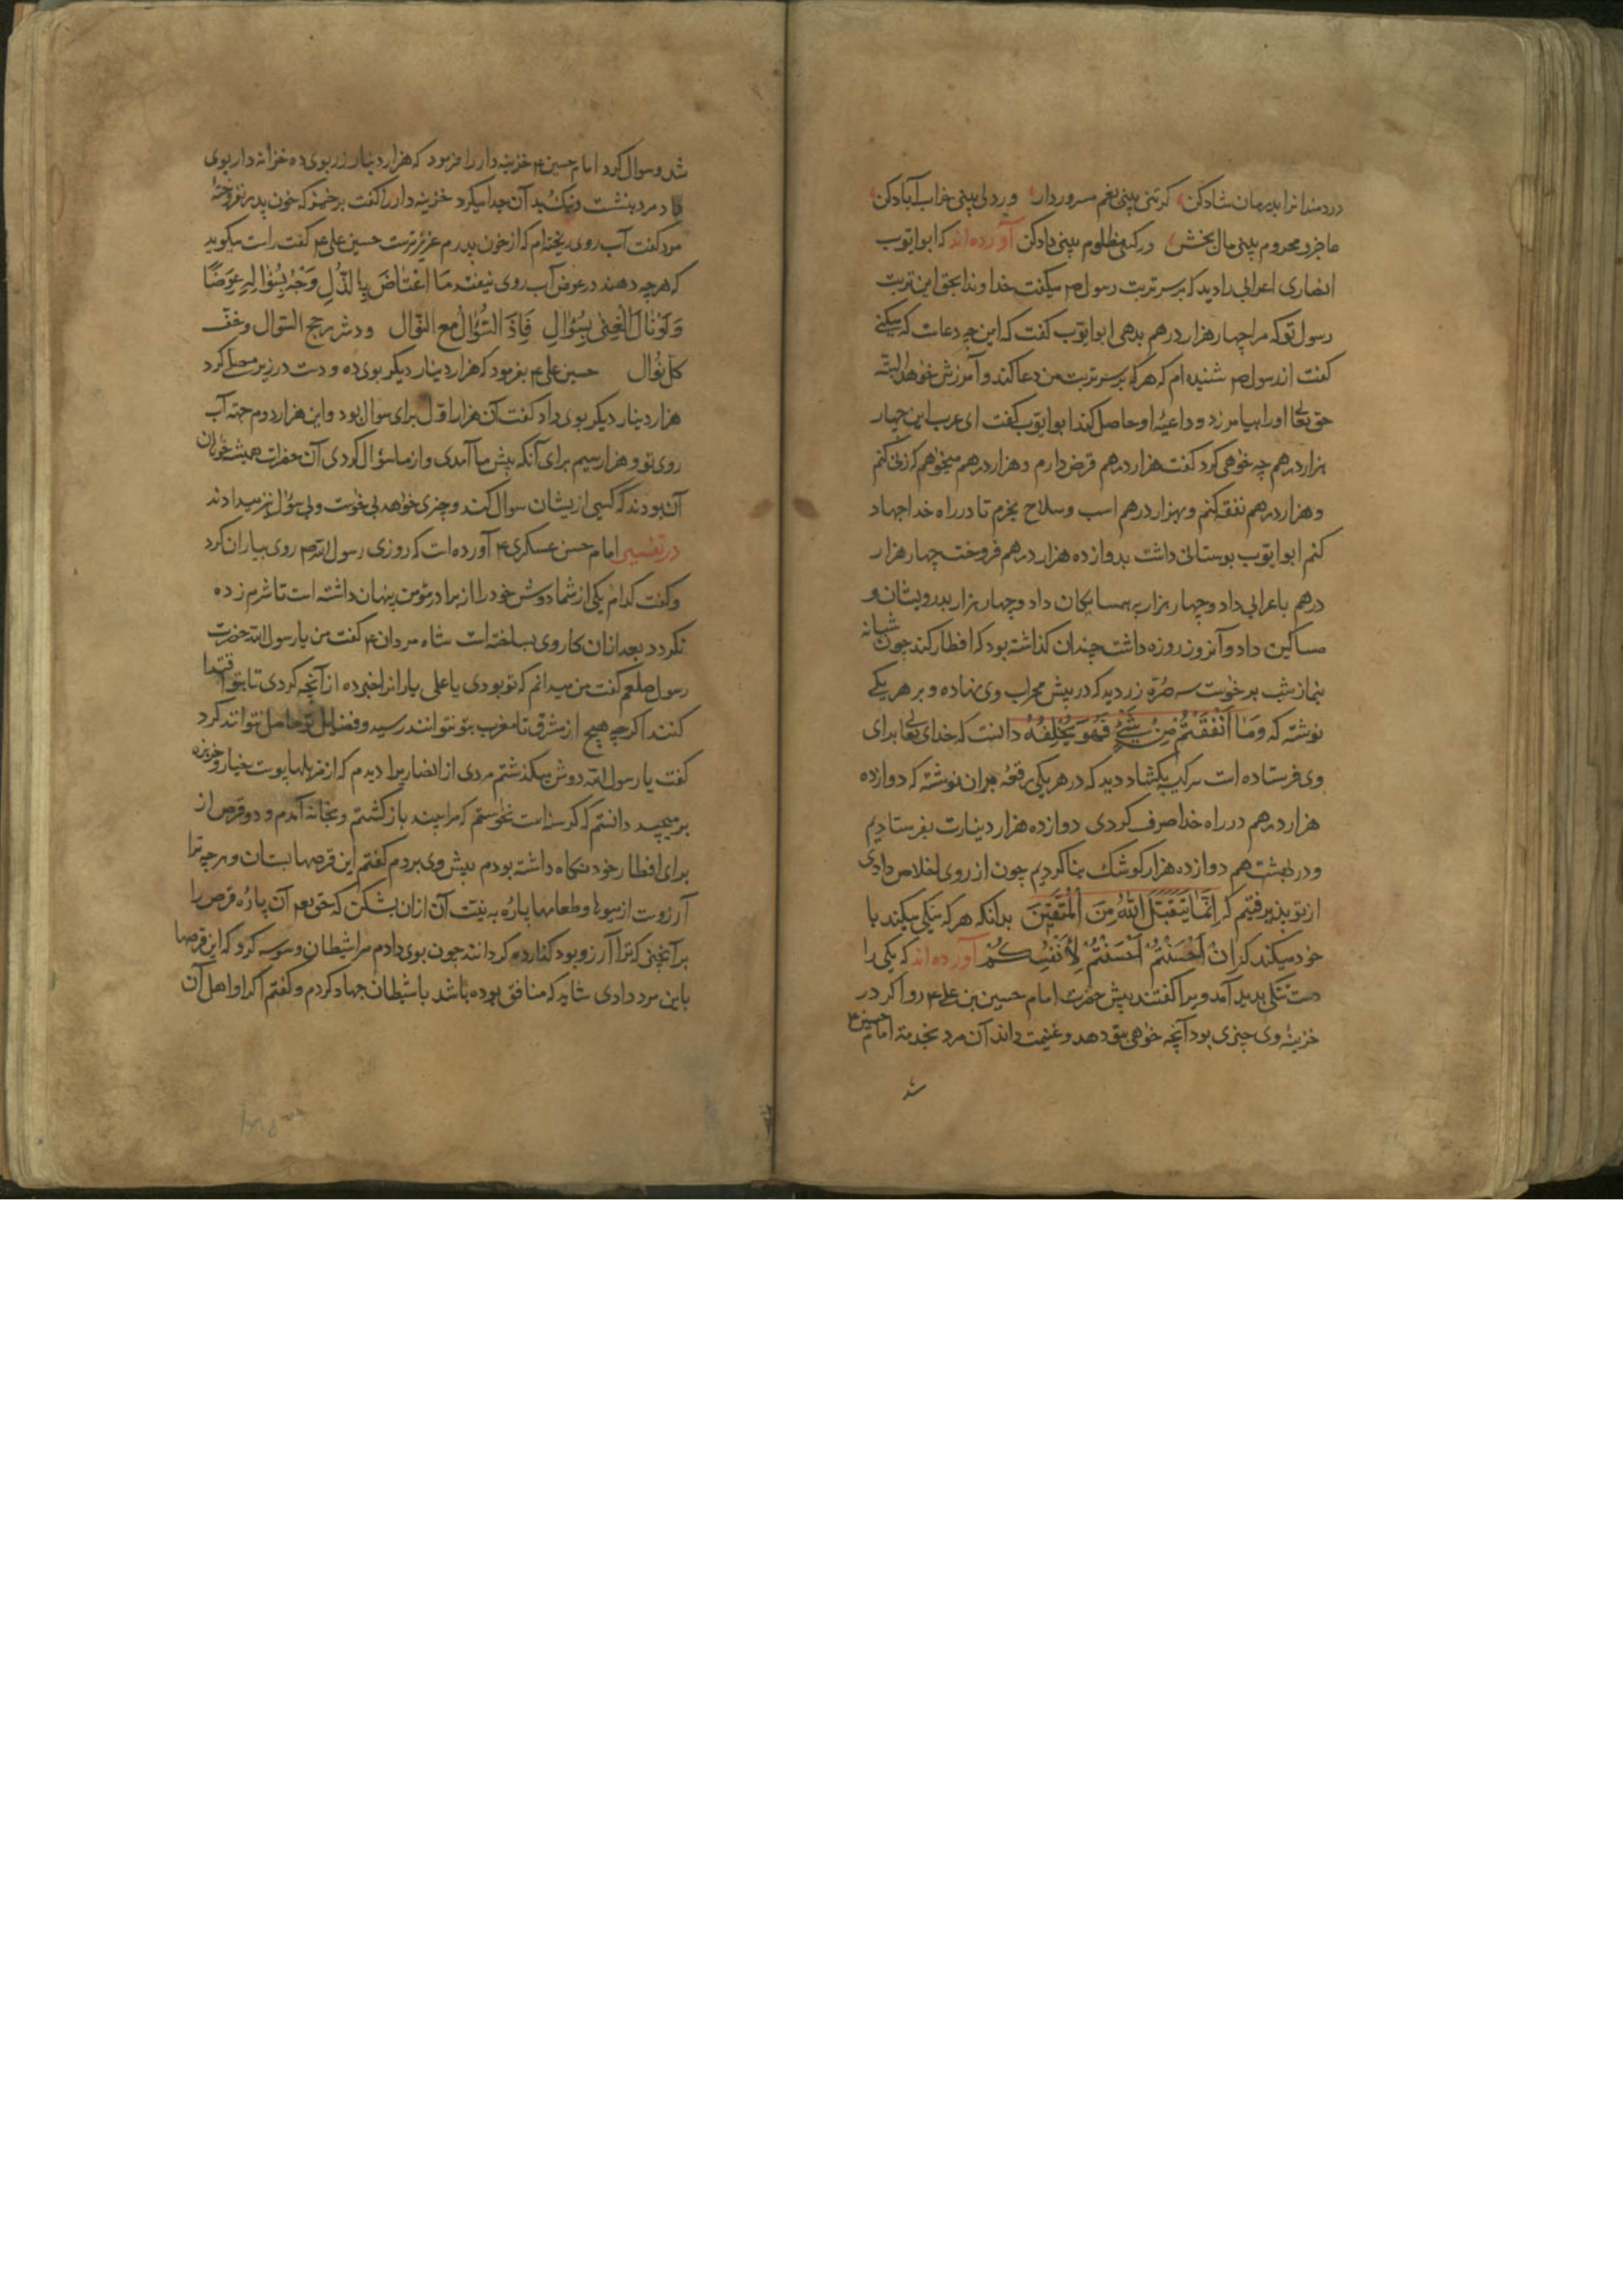 دردمندانرا بدرمان شادکن کرتنی بینی بغم مسرور دار وردلی بینی خراب آبادکن
عاجز و محروم بینی مال بخش ورکه مظلوم بینی دادکن آورده‌اند که ابو ایوب
انصاری اعرابی را دید که بر سر تربت رسول ص میکفت خداوندا بحق این تربت
رسول تو که مرا چهار هزار درهم بدهی ابو ایوب کفت که این چه دعاست که میکنے
کفت از رسول ص شنیده‌ام که هرکه بر سر تربت من دعا کند و آمرزش خواهد البته
حق تعا اورا بیامرزد و داعیهٔ او حاصل کند ابو ایوب کفت ای عرب این چهار
هزار درهم چه خواهی کرد کفت هزار درهم قرض دارم و هزار درهم میخواهم که زنی کنم
و هزار درهم نفقه کنم و بهزار درهم اسب و سلاح بخرم تا در راه خدا جهاد
کنم ابو ایوب بوستانی داشت بدوازده هزار درهم فروخت چهار هزار
درهم باعرابی داد و چهار هزار به همسایکان داد و چهار هزار بدرویشان و
مساکین داد و آنروز روزه داشت چندان کذاشته بود که افطار کند چون شبانه
بنماز شب برخواست سه صرّه زر دید که در پیش محراب وی نهاده و بر هر یکے
نوشته که وَمَا أَنْفَقْتُمْ مِنْ شَیْءٍ فَهُوَ یُخْلِفُهُ دانست که خدای تعا برای
وی فرستاده است سر کیسه بکشاد دید که در هر یکی رقعهٔ بران نوشته که دوازده
هزار درهم در راه خدا صرف کردی دوازده هزار دینارت بفرستادیم
و در بهشت هم دوازده هزار کوشک بنا کردیم چون از روی اخلاص دادی
از تو پذیرفتیم که اِنَّمَا یَتَقَبَّلُ اللّٰهُ مِنَ الْمُتَّقِینَ بدانکه هرکه نیکی میکند با
خود میکند که اِنْ اَحْسَنْتُمْ اَحْسَنْتُمْ لِاَنْفُسِکُمْ آورده‌اند که یکی را
دست تنکی پدید آمد ویرا کفتند پیش حضرت امام حسین بن علی ع رو اکر در
خزینهٔ وی چیزی بود آنچه خواهی بتو دهد و غنیمت داند آن مرد بخدمت امام حسین ع
شد
شد و سوال کرد امام حسین ع خزینه‌دار را فرمود که هزار دینار زر بوی ده خزانه‌دار بوی
داد مرد بنشست و نیک و بد آن جدا میکرد خزینه‌دار را کفت برخیز که خون پدر نفروختهٔ
مرد کفت آب روی ریخته‌ام که از خون پدرم عزیزتر است حسین علی ع کفت راست میکوید
که هرچه دهند در عوض آب روی نیفتد مَا اعْتَاضَ بِالذُّلِ وَجْهُ بِسُؤَالِهِ عِوَضًا
وَلَوْ نَالَ الْغِنٰی بِسُؤَالِ فَاِذَا السُّؤَالُ مع النّوال ودثر رجح السّوال وخفّ
کلّ نوال حسین علی ع بفرمود که هزار دینار دیکر بوی ده و دست در زیر مصلے کرد
هزار دینار دیکر بوی داد کفت آن هزار اوّل برای سوال بود و این هزار دوم جهة آب
روی تو و هزار سیم برای آنکه پیش ما آمدی و از ما سؤال کردی آن حضرات همیشه خواهان
آن بودند که کسی از یشان سوال کند و چیزی خواهد بی خواست و بی سؤال نیز میدادند
در تفسیر امام حسن عسکری ع آورده است که روزی رسول الله ص روی بیاران کرد
و کفت کدام یکی از شما دوش خود را از برادر مؤمن پنهان داشته است تا شرم زده
نکردد بعد ازان کار وی بساخته است شاه مردان ع کفت من یا رسول الله حضرت
رسول صلعم کفت من میدانم که تو بودی یا علی یارانرا خبر ده از آنچه کردی تا بتو اقتدا
کنند اکرچه هیچ از مشرق تا مغرب بتو نتوانند رسید و فضایل تو حاصل نتوانند کرد
کفت یا رسول الله دوش میکذشتم مردی از انصار را دیدم که از مزبلها پوست خیار و خربزه
بر میچید دانستم که کرسنه است نخواستم که مرا بیند باز کشتم و بخانه آمدم و دو قرص از
برای افطار خود نکاه داشته بودم پیش وی بردم کفتم این قرصها بستان و هرچه ترا
آرزوست از میوها و طعامها پارهٔ به نیت آن ازان بشکن که حق تعا آن پارهٔ قرص را
برآنچنی که ترا آرزو بود کذارده کرداند چون بوی دادم مرا شیطان وسوسه کرد که این قرصها
باین مرد دادی شاید که منافق بوده باشد با شیطان جهاد کردم و کفتم اکر او اهل آن